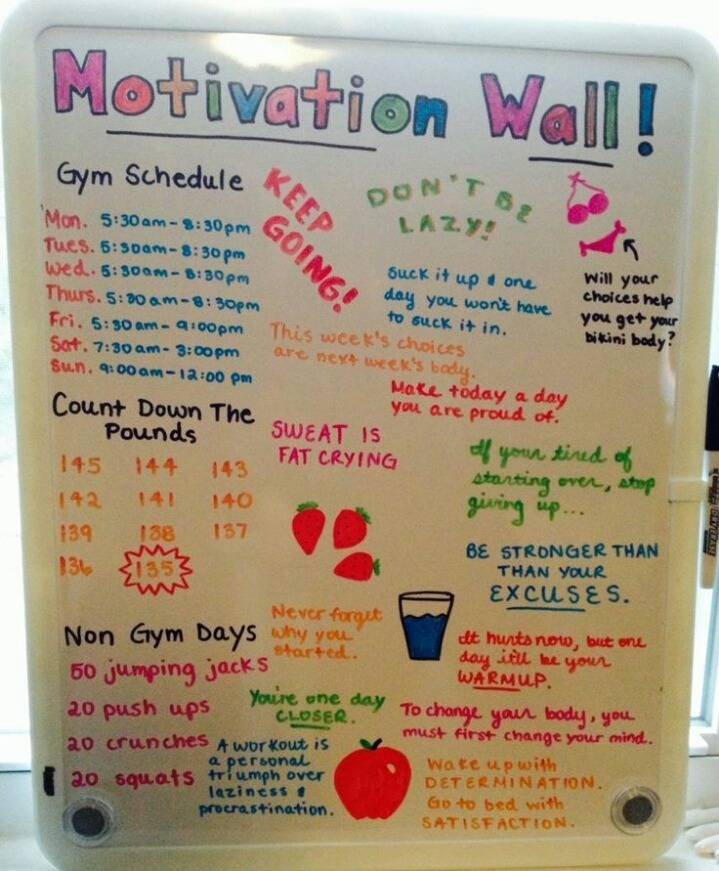 Motivation Wall!
Gym Schedule
Mon. 5:30am-8:30pm
Tues. 5:30am-8:30pm
Wed. 5:30am-8:30pm
Thurs. 5:30am-8:30pm
Fri. 5:30am-9:00pm
Sat. 7:30am-3:00pm
Sun. 9:00am-12:00 pm
KEEP
GOING!
DON'T BE
LAZY!
Suck it up & one
day you won't have
to suck it in.
Will your
choices help
you get your
bikini body?
This week's choices
are next week's body.
Make today a day
you are proud of.
Count Down The
Pounds
145 144 143
142 141 140
139 138 137
136 135
SWEAT IS
FAT CRYING
If your tired of
starting over, stop
giving up...
BE STRONGER THAN
THAN YOUR
EXCUSES.
Never forget
why you
started.
It hurts now, but one
day it'll be your
WARMUP.
Non Gym Days
50 jumping jacks
20 push ups
20 crunches
20 squats
You're one day
CLOSER.
To change your body, you
must first change your mind.
A workout is
a personal
triumph over
laziness &
procrastination.
Wake up with
DETERMINATION.
Go to bed with
SATISFACTION.